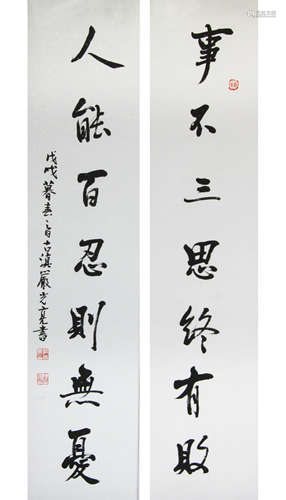 事不三思終有敗
人能百忍則無憂
戊戌暮春之旨古滇嚴光亮書